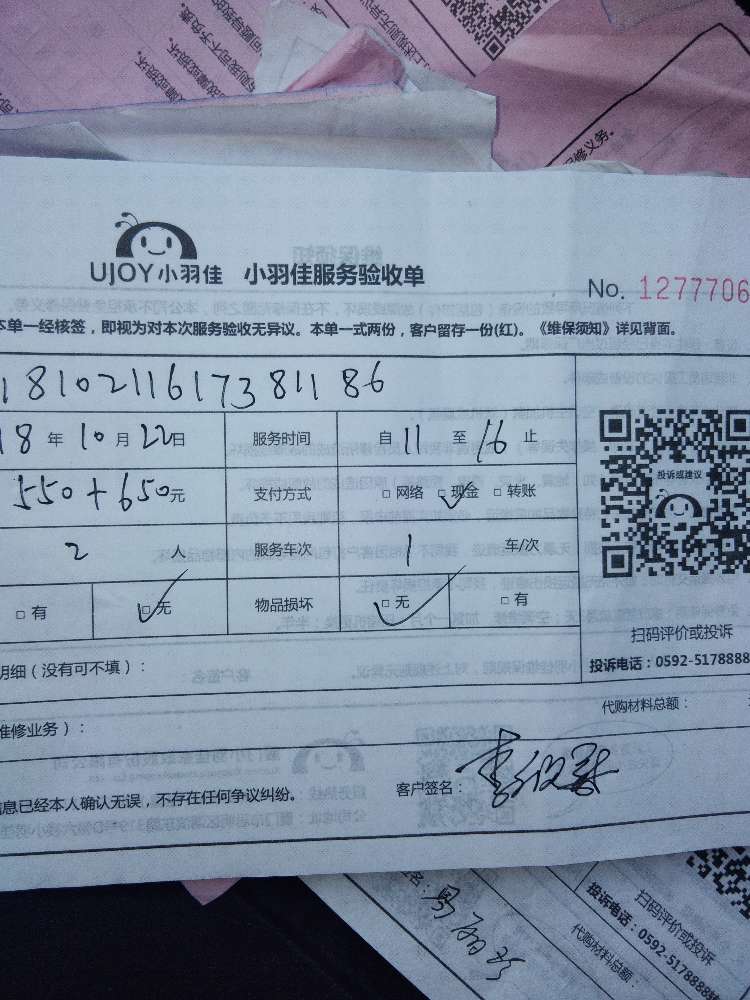 上述规则无异
则我司不予负责。
障或损坏。
修义务。
UJOY小羽佳 小羽佳服务验收单
No. 1277706
本单一经核签，即视为对本次服务验收无异议。本单一式两份，客户留存一份(红)。《维保须知》详见背面。
1810211617381186
18年10月22日 服务时间 自11至16止
550+650元 支付方式 □网络 □现金 □转账
投诉或建议
2人 服务车次 1车/次
□有 □无 物品损坏 □无 □有
扫码评价或投诉
明细（没有可不填）：
投诉电话：0592-5178888
代购材料总额：
维修业务）：
信息已经本人确认无误，不存在任何争议纠纷。
客户签名：
扫码评价或投诉
投诉电话：0592-5178888
代购材料总额：